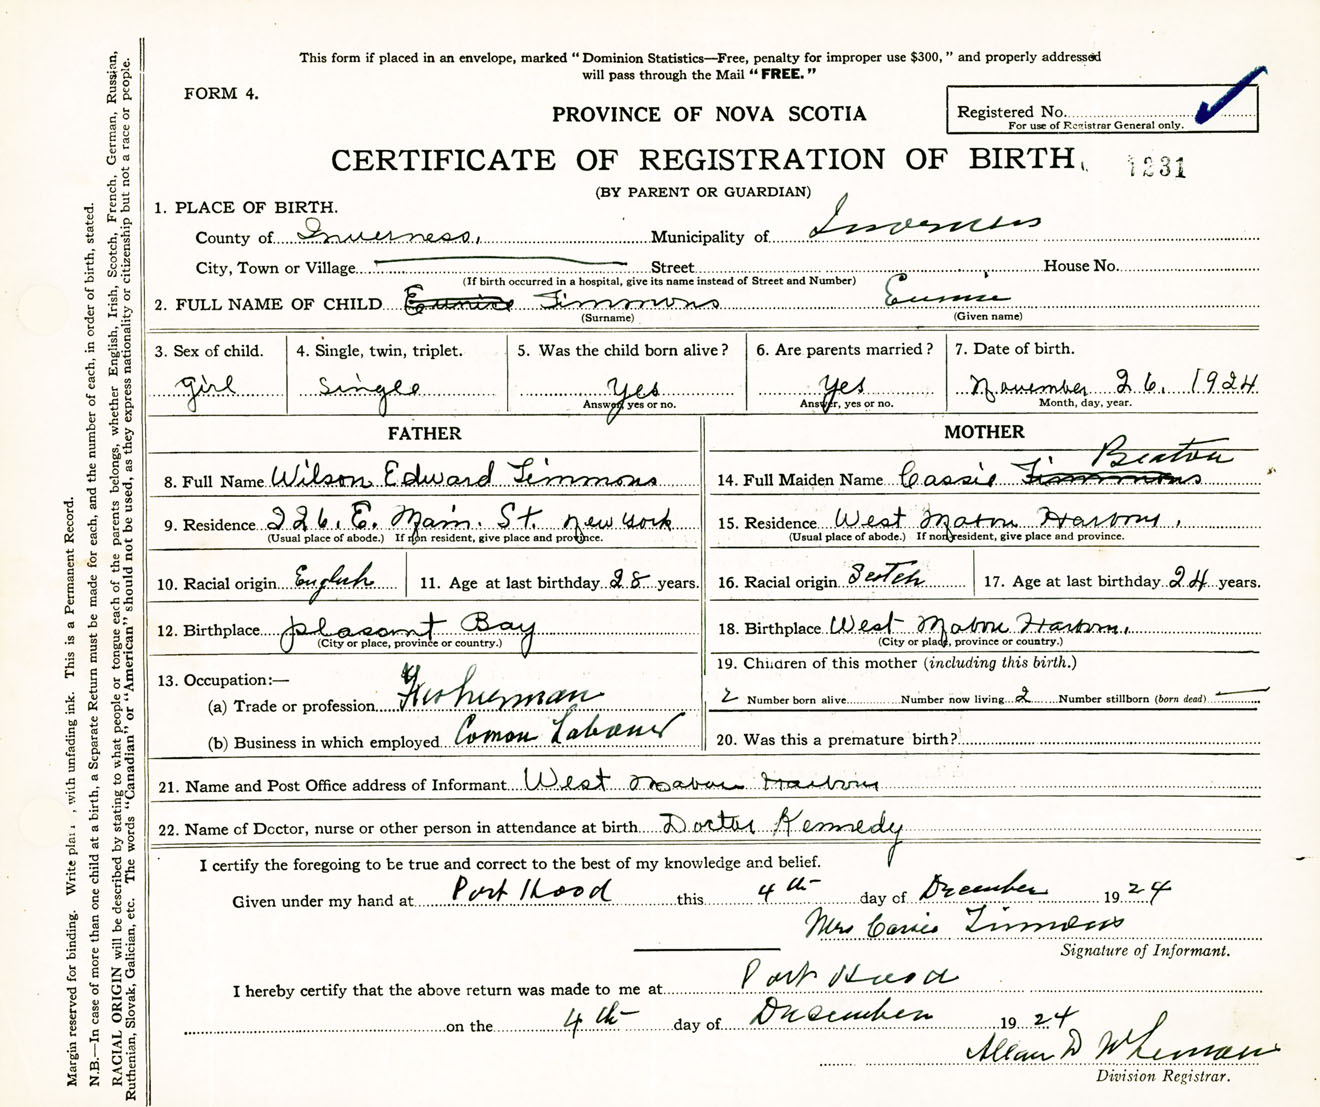 This form if placed in an envelope, marked "Dominion Statistics—Free, penalty for improper use $300," and properly addressed
will pass through the Mail "FREE."
FORM 4.
PROVINCE OF NOVA SCOTIA
Registered No.
For use of Registrar General only.
CERTIFICATE OF REGISTRATION OF BIRTH
1231
(BY PARENT OR GUARDIAN)
1. PLACE OF BIRTH.
County of Inverness, Municipality of Inverness
City, Town or Village Street House No.
(If birth occurred in a hospital, give its name instead of Street and Number)
2. FULL NAME OF CHILD Eunice Timmons Eunice
(Surname) (Given name)
3. Sex of child. 4. Single, twin, triplet. 5. Was the child born alive? 6. Are parents married? 7. Date of birth.
girl Single Yes Yes November 26. 1924
Answer yes or no. Answer, yes or no. Month, day, year.
FATHER MOTHER
Beaton
8. Full Name Wilson Edward Timmons 14. Full Maiden Name Cassie Timmons
9. Residence 226. E. Main. St. New York 15. Residence West Mabou Harbour,
(Usual place of abode.) If non resident, give place and province. (Usual place of abode.) If non resident, give place and province.
10. Racial origin English 11. Age at last birthday 28 years. 16. Racial origin Scotch 17. Age at last birthday 24 years.
12. Birthplace pleasant Bay 18. Birthplace West Mabou Harbour,
(City or place, province or country.) (City or place, province or country.)
13. Occupation:— 19. Children of this mother (including this birth.)
(a) Trade or profession Fisherman 2 Number born alive Number now living 2 Number stillborn (born dead) —
(b) Business in which employed Comon Labourer 20. Was this a premature birth?
21. Name and Post Office address of Informant West Mabou Harbour
22. Name of Doctor, nurse or other person in attendance at birth Doctor Kennedy
I certify the foregoing to be true and correct to the best of my knowledge and belief.
Given under my hand at Port Hood this 4th day of December 1924
Mrs Cassie Timmons
Signature of Informant.
I hereby certify that the above return was made to me at Port Hood
on the 4th day of December 1924
Allan D
Division Registrar.
Margin reserved for binding. Write , with unfading ink. This is a Permanent Record.
N.B.—In case of more than one child at a birth, a Separate Return must be made for each, and the number of each, in order of birth, stated.
RACIAL ORIGIN will be described by stating to what people or tongue each of the parents belongs, whether English, Irish, Scotch, French, German, Russian,
Ruthenian, Slovak, Galician, etc. The words "Canadian" or "American" should not be used, as they express nationality or citizenship but not a race or people.